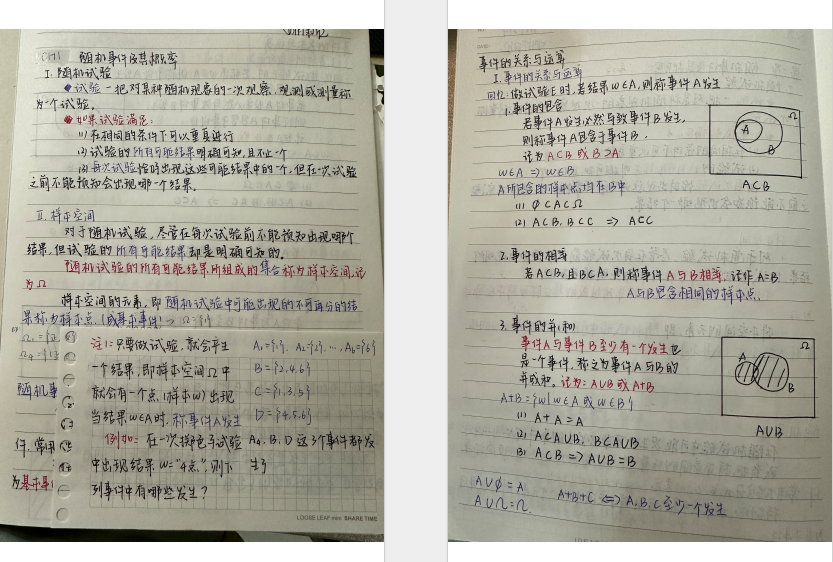 CH1 随机事件及其概率
I. 随机试验
试验一把对某种随机现象的一次观察,观测或测量称
为个试验.
如果试验满足:
(1) 在相同的条件下可以重复进行
(2) 试验的所有可能结果明确可知,且不止一个
(3) 每次试验恰好出现这些可能结果中的一个,但在一次试验
之前不能预知会出现哪一个结果.
II. 样本空间
对于随机试验,尽管在每次试验前不能预知出现哪个
结果,但试验的所有可能结果却是明确可知的.
随机试验的所有可能结果所组成的集合称为样本空间,记
为Ω
样本空间的元素,即随机试验中可能出现的不可再分的结
果称为样本点.(或基本事件)
随机事
件. 常用
为基本事
注1: 只要做试验.就会产生
一个结果,即样本空间Ω中
就会有一个点(样本w)出现
当结果w∈A时.称事件A发生
例如: 在一次掷色子试验
中出现结果w="4点",则下
列事件中有哪些发生?
A₁={1}, A₂={2}, ..., A₆={6}
B={2,4,6}
C={1,3,5}
D={4,5,6}
A₄, B, D这3个事件都发
生了
LOOSE LEAF mini SHARE TIME
事件的关系与运算
I. 事件的关系与运算
回忆: 做试验E时,若结果w∈A,则称事件A发生
1. 事件的包含
若事件A发生必然导致事件B发生,
则称事件A包含于事件B.
记为A⊂B或B⊃A
w∈A ⇒ w∈B
A所包含的样本点均在B中
(1) ∅⊂A⊂Ω
(2) A⊂B, B⊂C ⇒ A⊂C
Ω
A
B
A⊂B
2. 事件的相等
若A⊂B,且B⊂A,则称事件A与B相等,记作A=B
A与B包含相同的样本点
3. 事件的并(和)
事件A与事件B至少有一个发生也
是一个事件,称之为事件A与B的
并或和. 记为: A∪B或A+B
A+B={w|w∈A或w∈B}
(1) A+A=A
(2) A⊂A∪B, B⊂A∪B
(3) A⊂B ⇒ A∪B=B
Ω
A
B
A∪B
A∪∅=A
A∪Ω=Ω
A+B+C ⇔ A,B,C至少一个发生